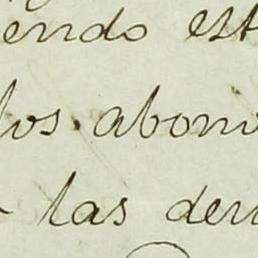 endo est
los abono
las den